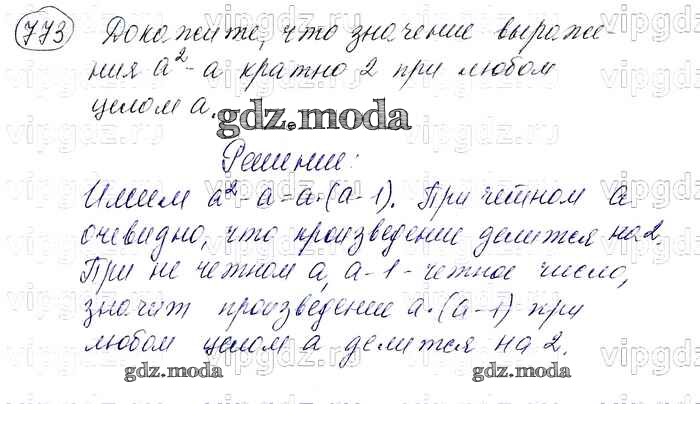 773 Докажите, что значение выраже-
ния a² - a кратно 2 при любом
целом a.
gdz.moda
Решение:
Имеем a² - a = a·(a - 1). При четном a
очевидно, что произведение делится на 2.
При не четном a, a - 1 - четное число,
значит произведение a·(a - 1) при
любом целом a делится на 2.
gdz.moda gdz.moda